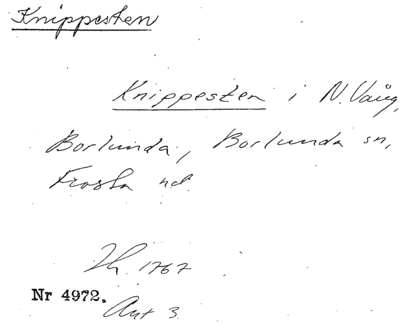 Knippesten
Knippesten i N. Vång,
Borlunda, Borlunda sn,
Frosta hd.
Lh. 1767
Nr 4972.
Akt 3.